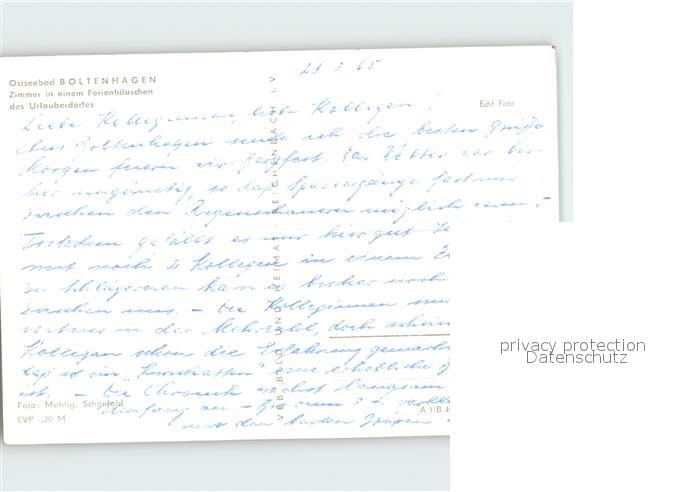 Ostseebad BOLTENHAGEN
Zimmer in einem Ferienhäuschen
des Urlauberdorfes
Echt Foto
23 3 65
Liebe Kolleginnen, liebe Kollegen!
Aus Boltenhagen sende ich die besten Grüße
Morgen feiern wir Bergfest. Das Wetter war bis-
her ungünstig, so daß Spaziergänge fast nur
zwischen den Regenschauern möglich waren. -
Trotzdem gefällt es mir hier gut
mit noch 4 Kollegen in einem
zu Schlägereien kam es bisher noch
zwischen uns. - Die Kolleginnen sind
in der Mehrzahl, doch scheinen
Kollegen schon die Erfahrung gemacht
daß so ein "Kurschatten" eine erhebliche
ist. - Die Chronik wächst langsam
an. -
mit den besten Grüßen
VEB BILD UND HEIMAT REICHENBACH I. V.
Foto: Mehlig, Schönfeld
EVP -,20 M
A 1/B 4
privacy protection
Datenschutz